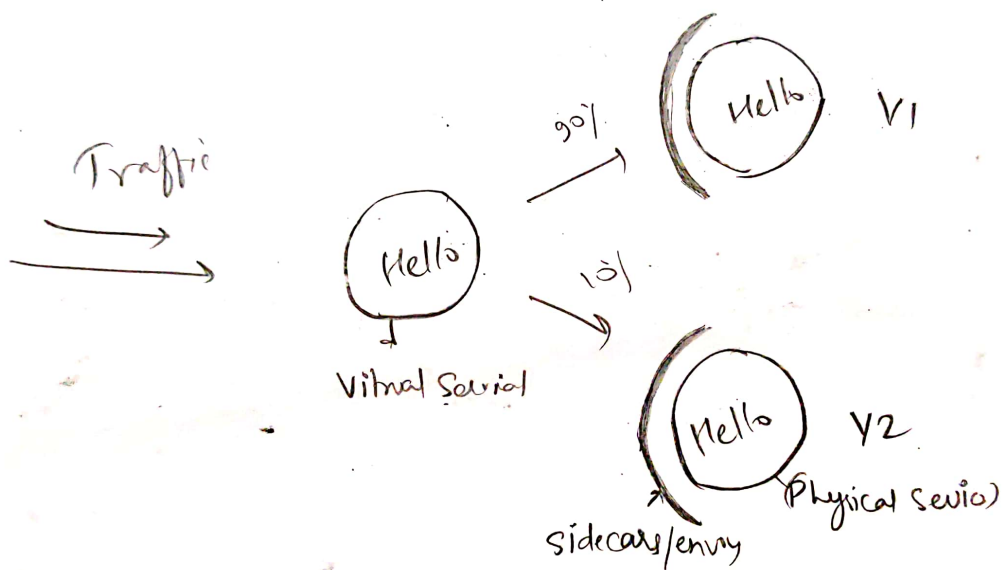 Traffic
Hello
Vitual Servial
90%
Hello
V1
10%
Hello
V2
(Physical Sevice)
sidecars/envoy